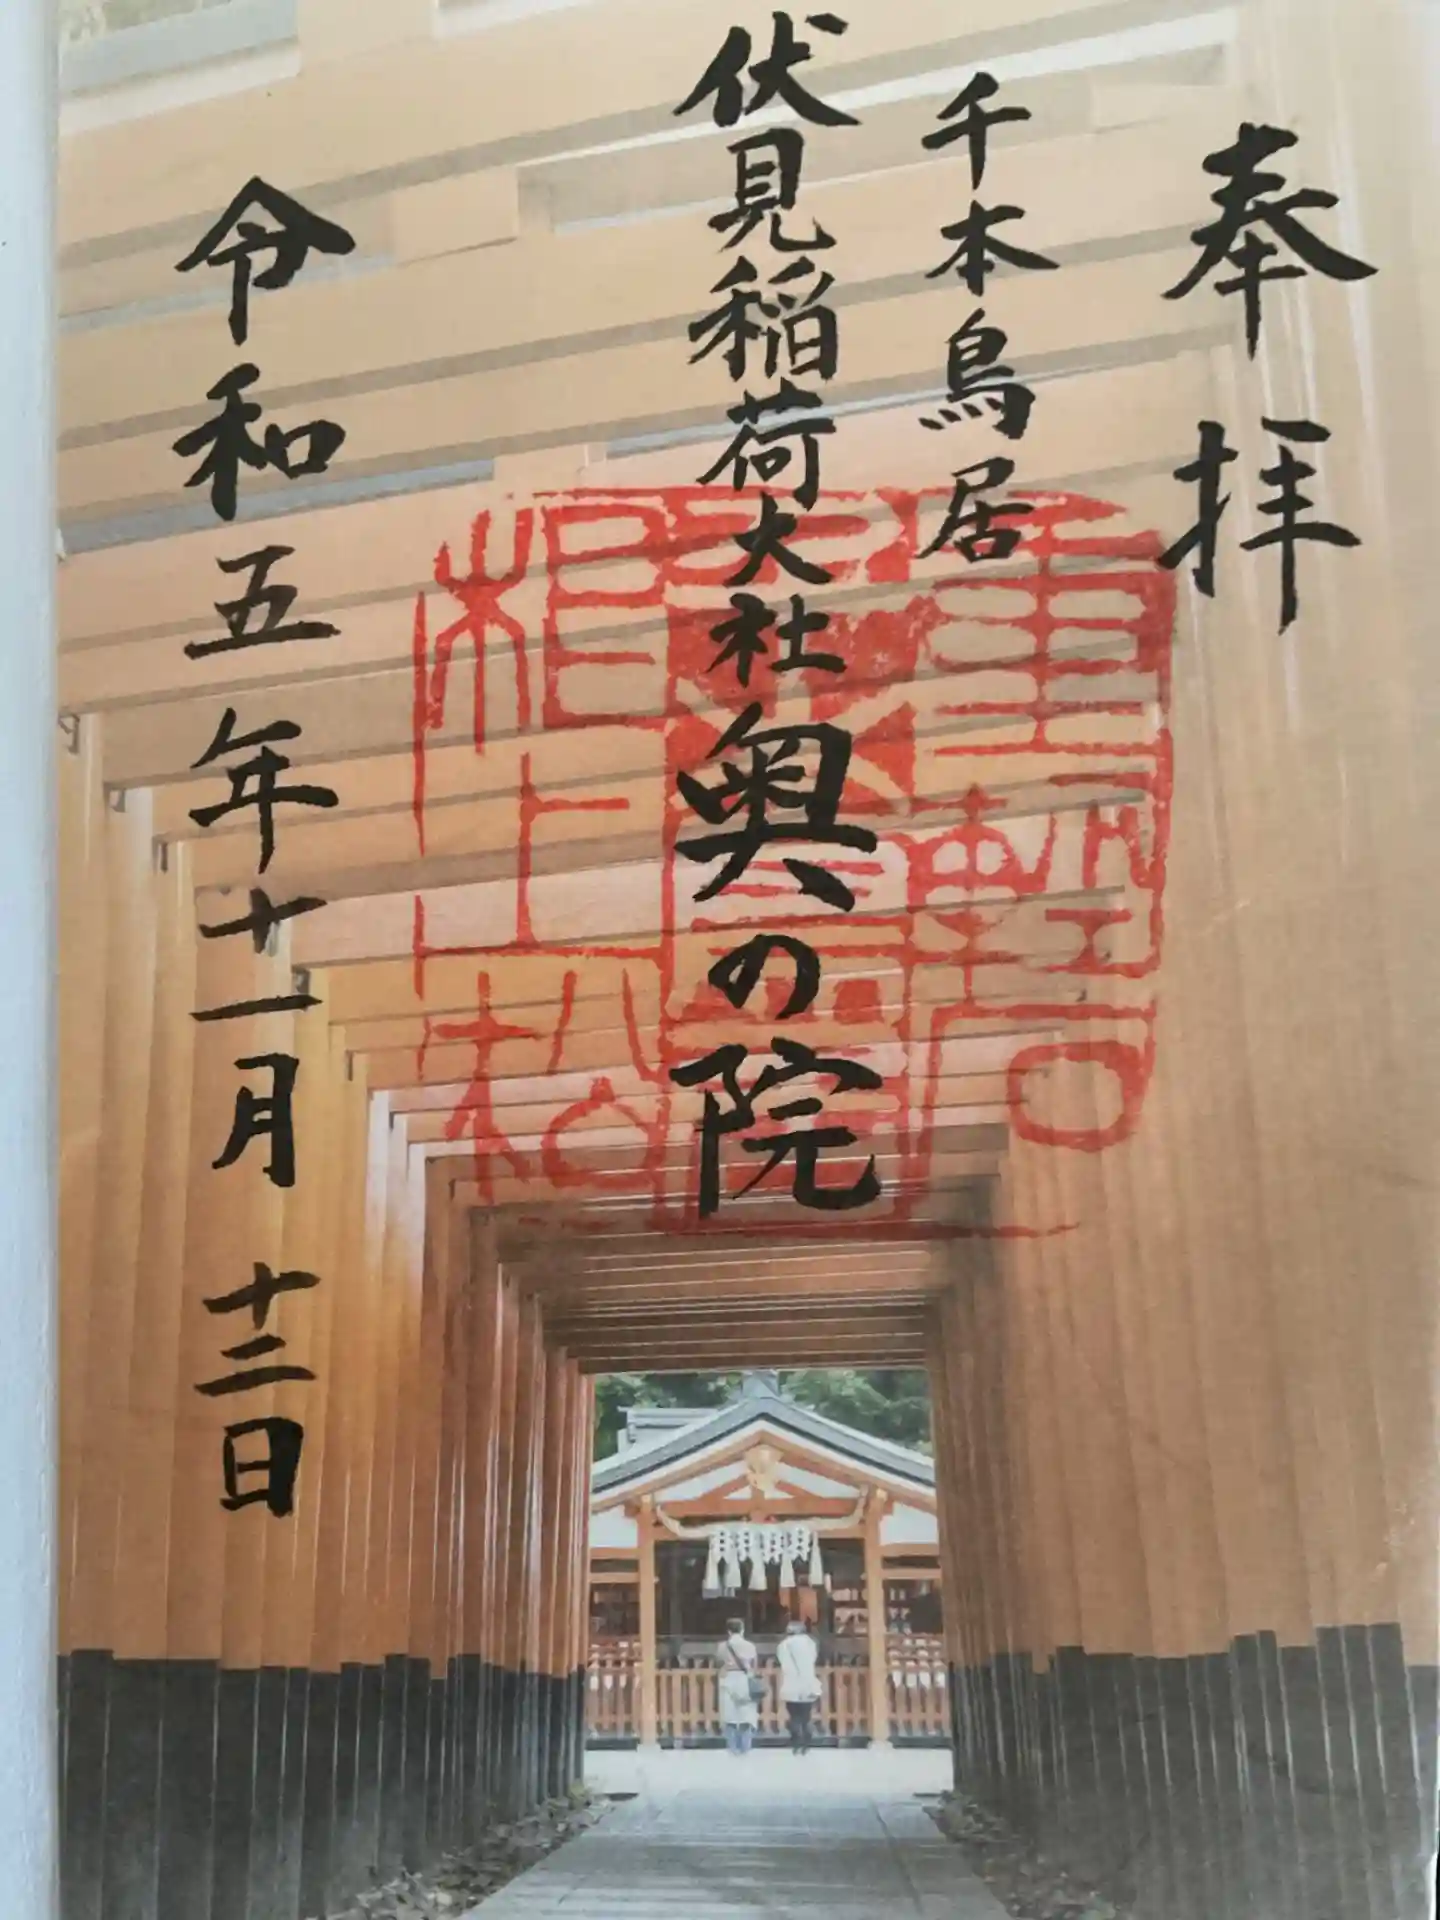 奉拝
千本鳥居
伏見稲荷大社奥の院
令和五年十一月十二日